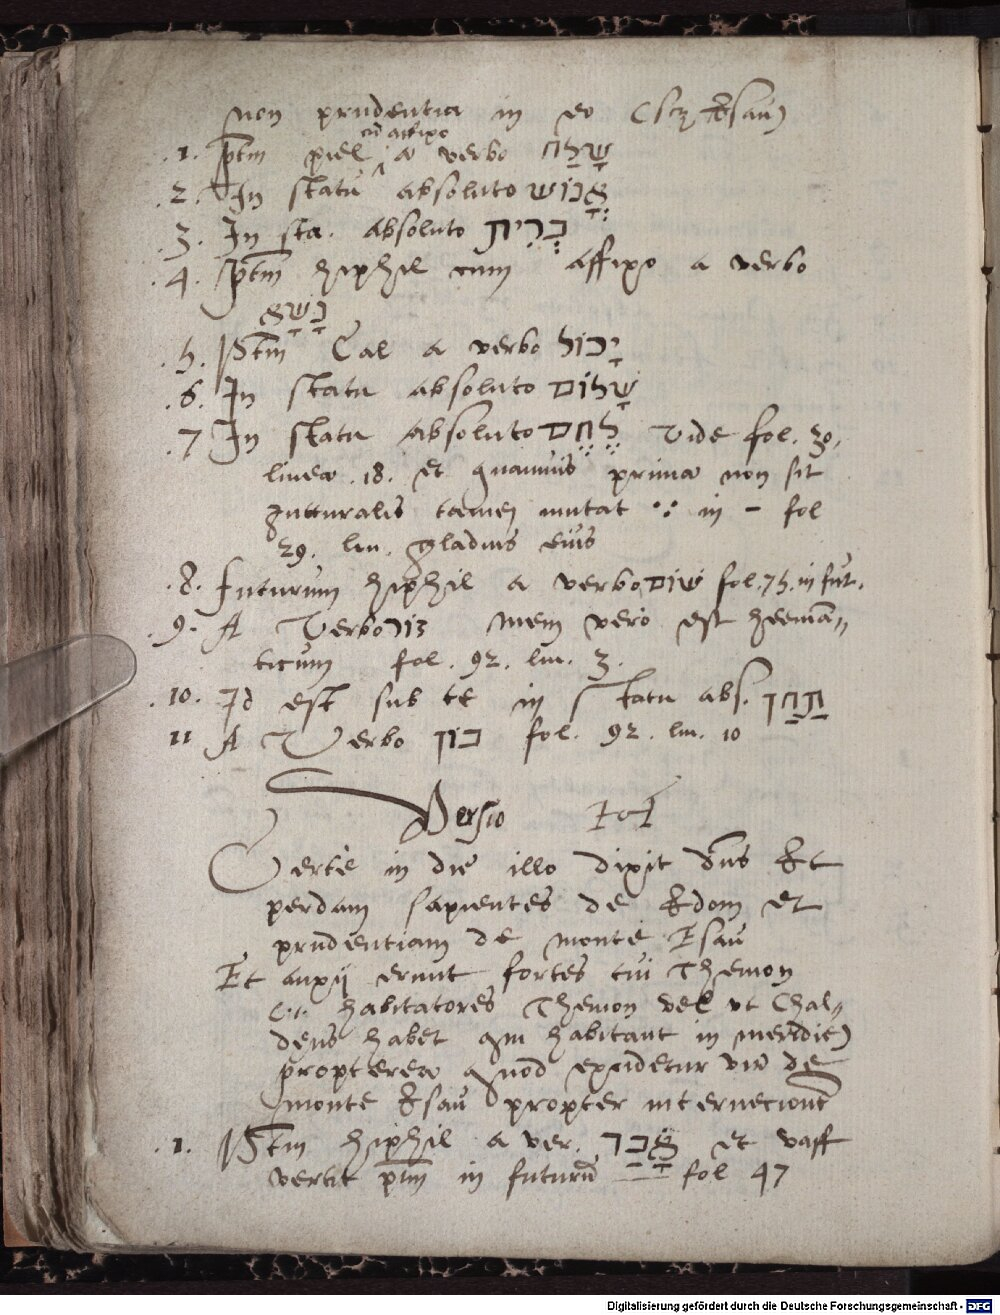 non prudentia in eo (scz Esau)
cū affixo
.1. ptm piel a verbo שָׁלַח
.2. In statu absoluto אֱנוֹשׁ
.3. In sta. absoluto בְּרִית
.4. ptm hiphil cum affixo a verbo
נָשָׁא
.5. Ptm Cal a verbo יָכוֹל
.6. In statu absoluto שָׁלוֹם
.7 In statu absoluto לֶחֶם Vide fol. 30,
linea .18. et quamuis prima non sit
gutturalis tamen mutat in - fol
29. lin. gladius eius
.8. futurum hiphil a verbo שׂוּם fol. 75. in fut.
.9. A Verbo זור mem vero est heeman„
ticum fol. 92. lin. 3.
.10. Id est sub te in statu abs. תַּחַן
11 A Verbo בון fol. 92. lin. 10
Versio
Certè in die illo dixit dns Et
perdam sapientes de Edom et
prudentiam de monte Esau
Et erunt fortes tui Themon
(.i. habitatores Themon vel ut Chal„
deus habet qui habitant in meridie)
propterea quod excidetur vir de
monte Esau propter internecionē
.1. Ptm hiphil a ver. אָבַד et
vertit ptm in futurū fol 47